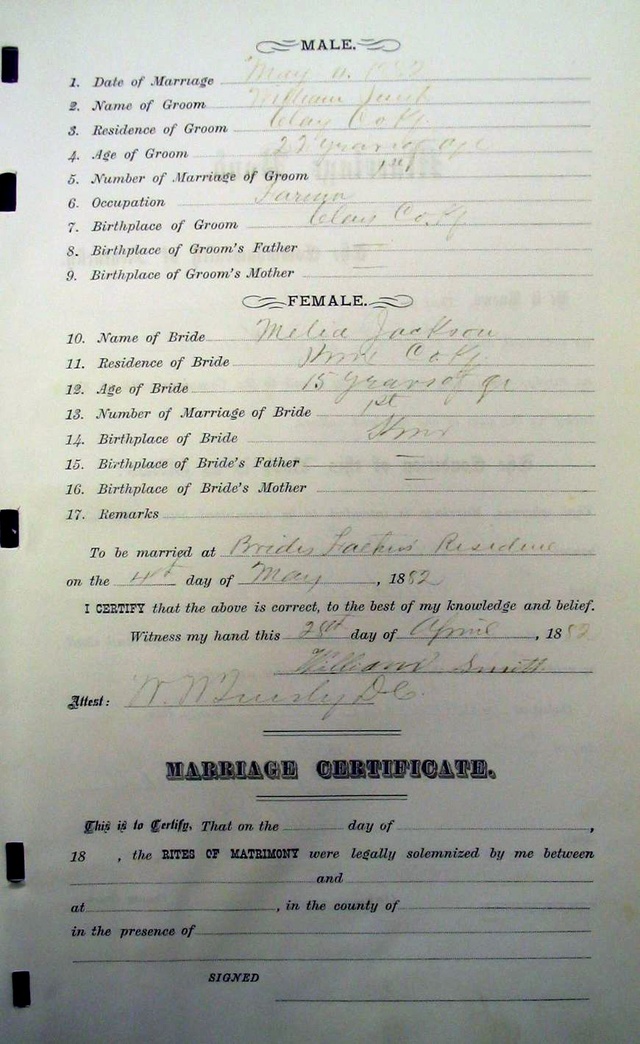 MALE.
1. Date of Marriage May 4. 1882
2. Name of Groom William Smith
3. Residence of Groom Clay Co Ky.
4. Age of Groom 22 years of age
5. Number of Marriage of Groom 1st
6. Occupation Farmer
7. Birthplace of Groom Clay Co. Ky
8. Birthplace of Groom's Father
9. Birthplace of Groom's Mother
FEMALE.
10. Name of Bride Jackson
11. Residence of Bride Co Ky.
12. Age of Bride 15 years of age
13. Number of Marriage of Bride 1st
14. Birthplace of Bride
15. Birthplace of Bride's Father
16. Birthplace of Bride's Mother
17. Remarks
To be married at Brides Fathers Residence
on the 4th day of May, 1882
I CERTIFY that the above is correct, to the best of my knowledge and belief.
Witness my hand this 28th day of April, 1882
William Smith
Attest: D.C.
MARRIAGE CERTIFICATE.
This is to Certify, That on the day of ,
18 , the RITES OF MATRIMONY were legally solemnized by me between
and
at , in the county of
in the presence of
SIGNED